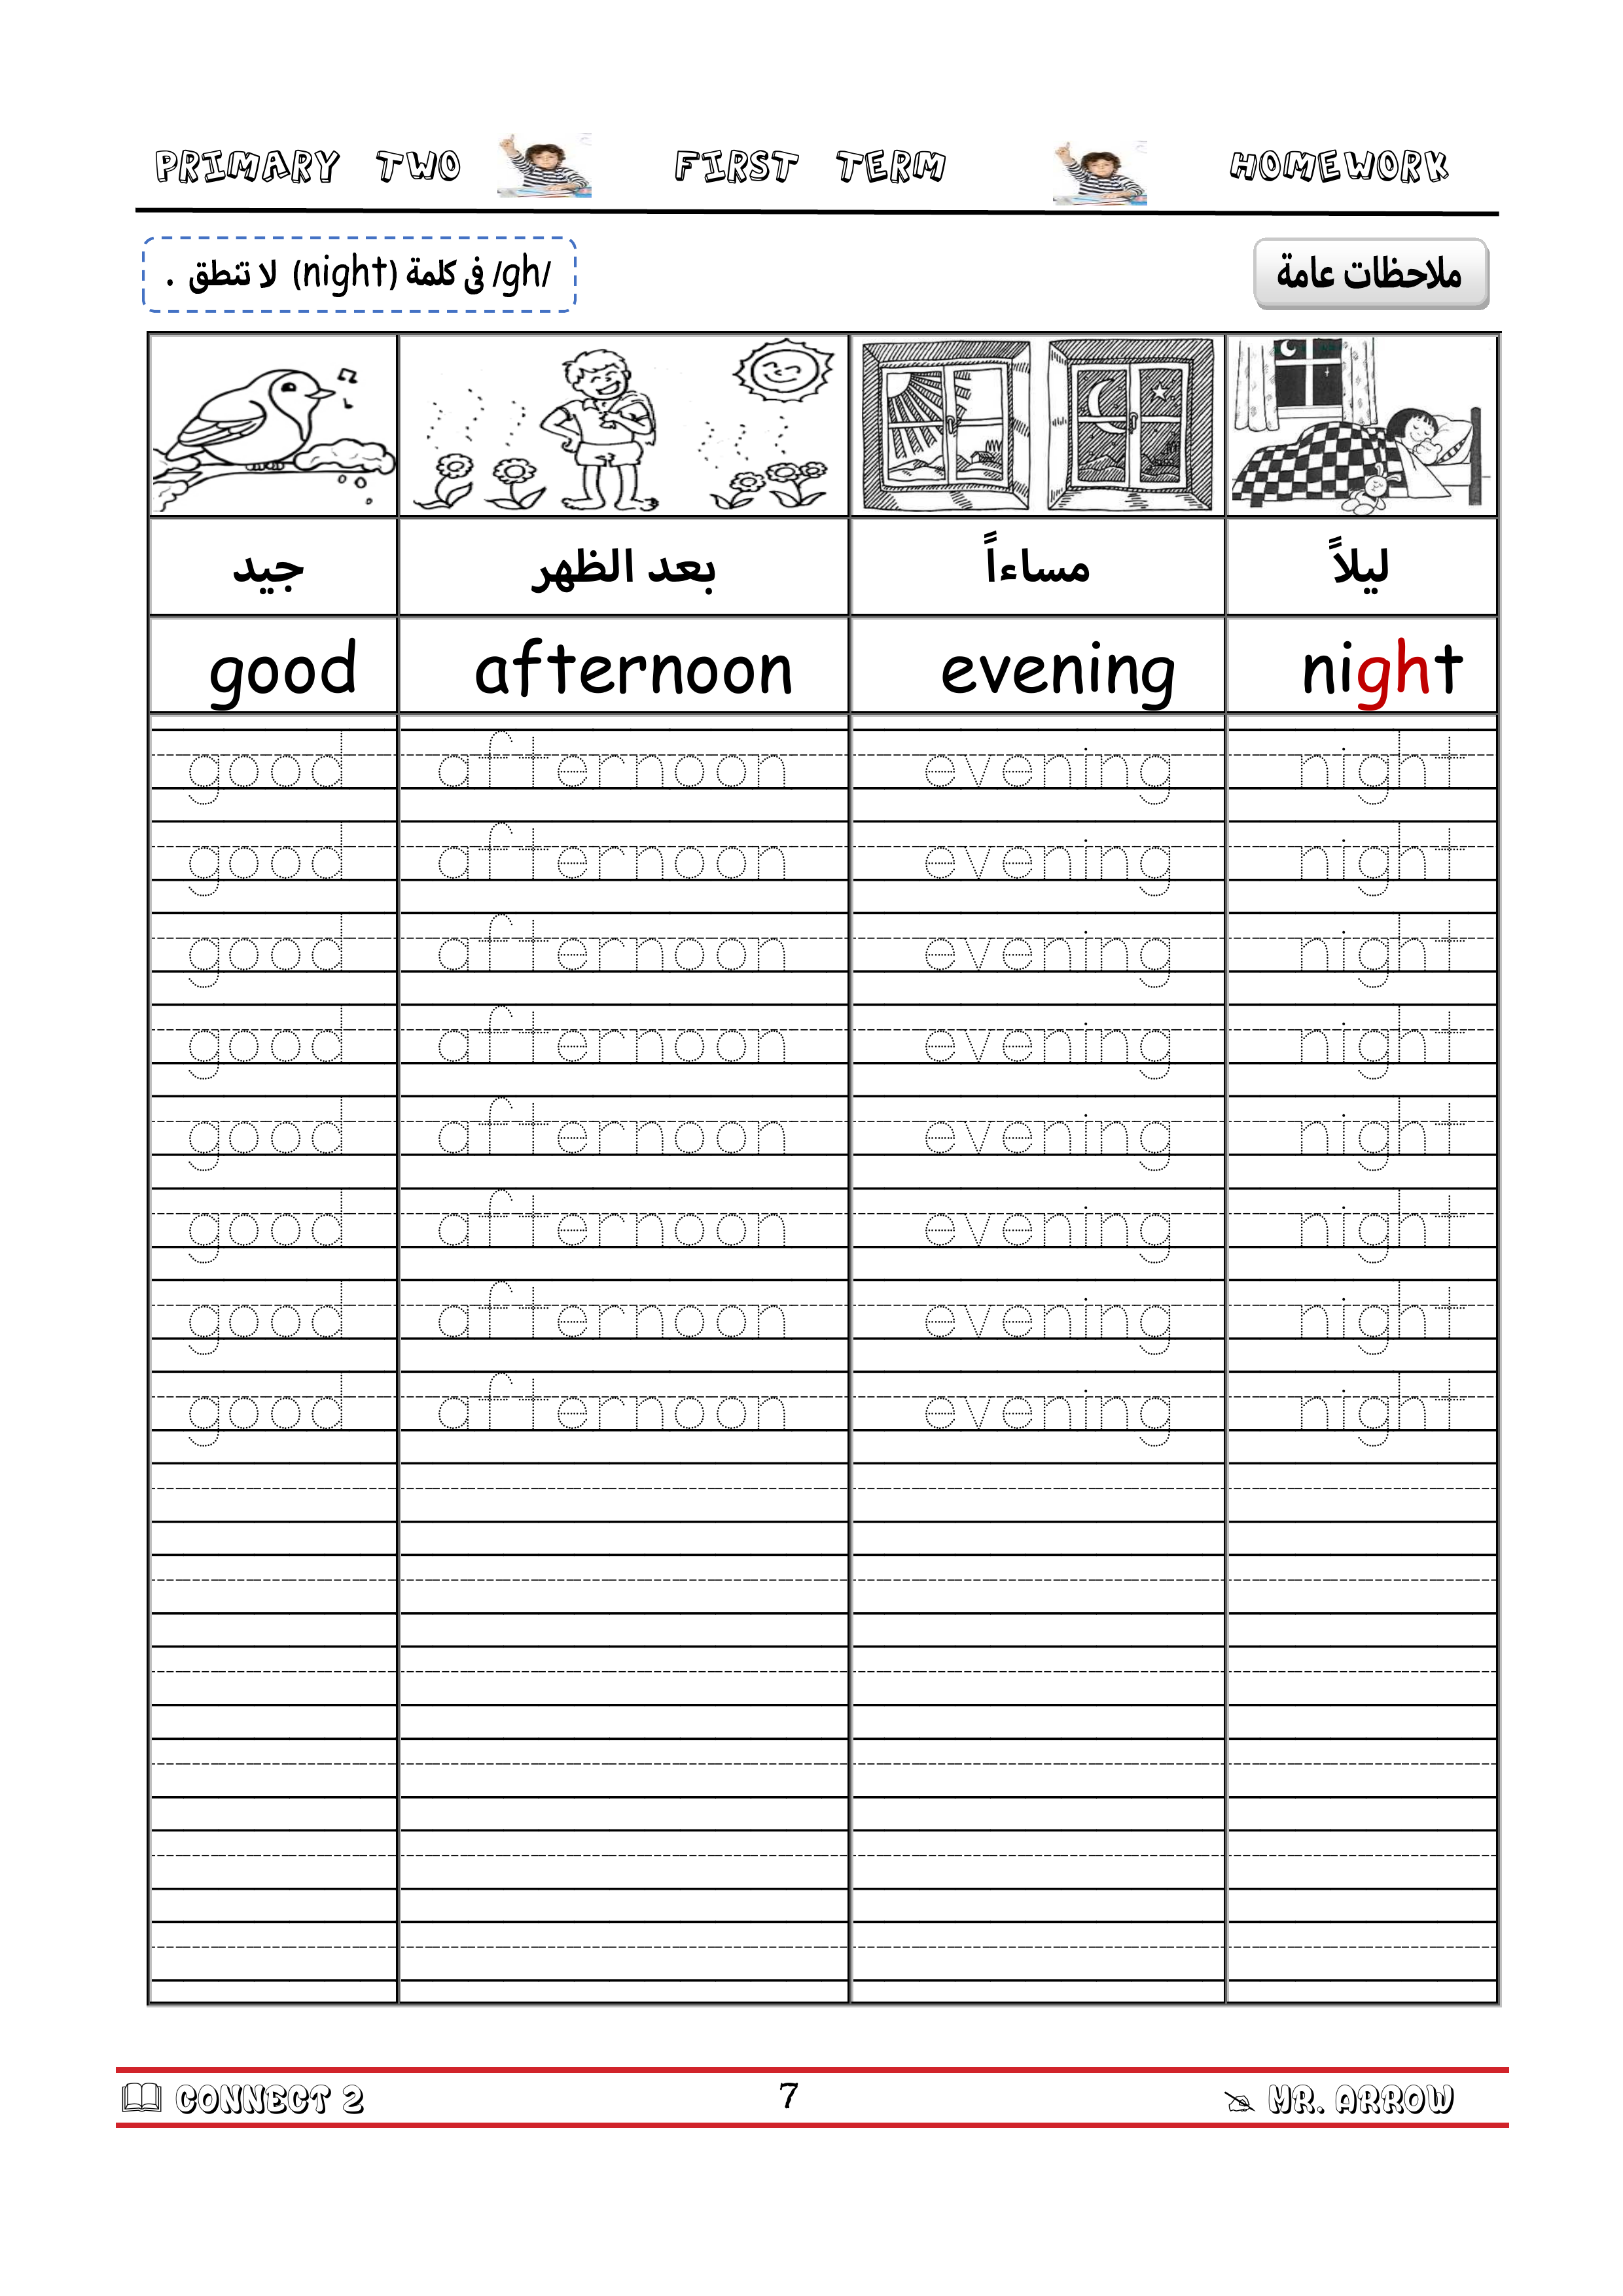 PRIMARY TWO FIRST TERM HOMEWORK
ملاحظات عامة
/gh/ فى كلمة (night) لا تنطق .
جيد بعد الظهر مساءاً ليلاً
good afternoon evening night
good afternoon evening night
good afternoon evening night
good afternoon evening night
good afternoon evening night
good afternoon evening night
good afternoon evening night
good afternoon evening night
good afternoon evening night
CONNECT 2 7 MR. ARROW